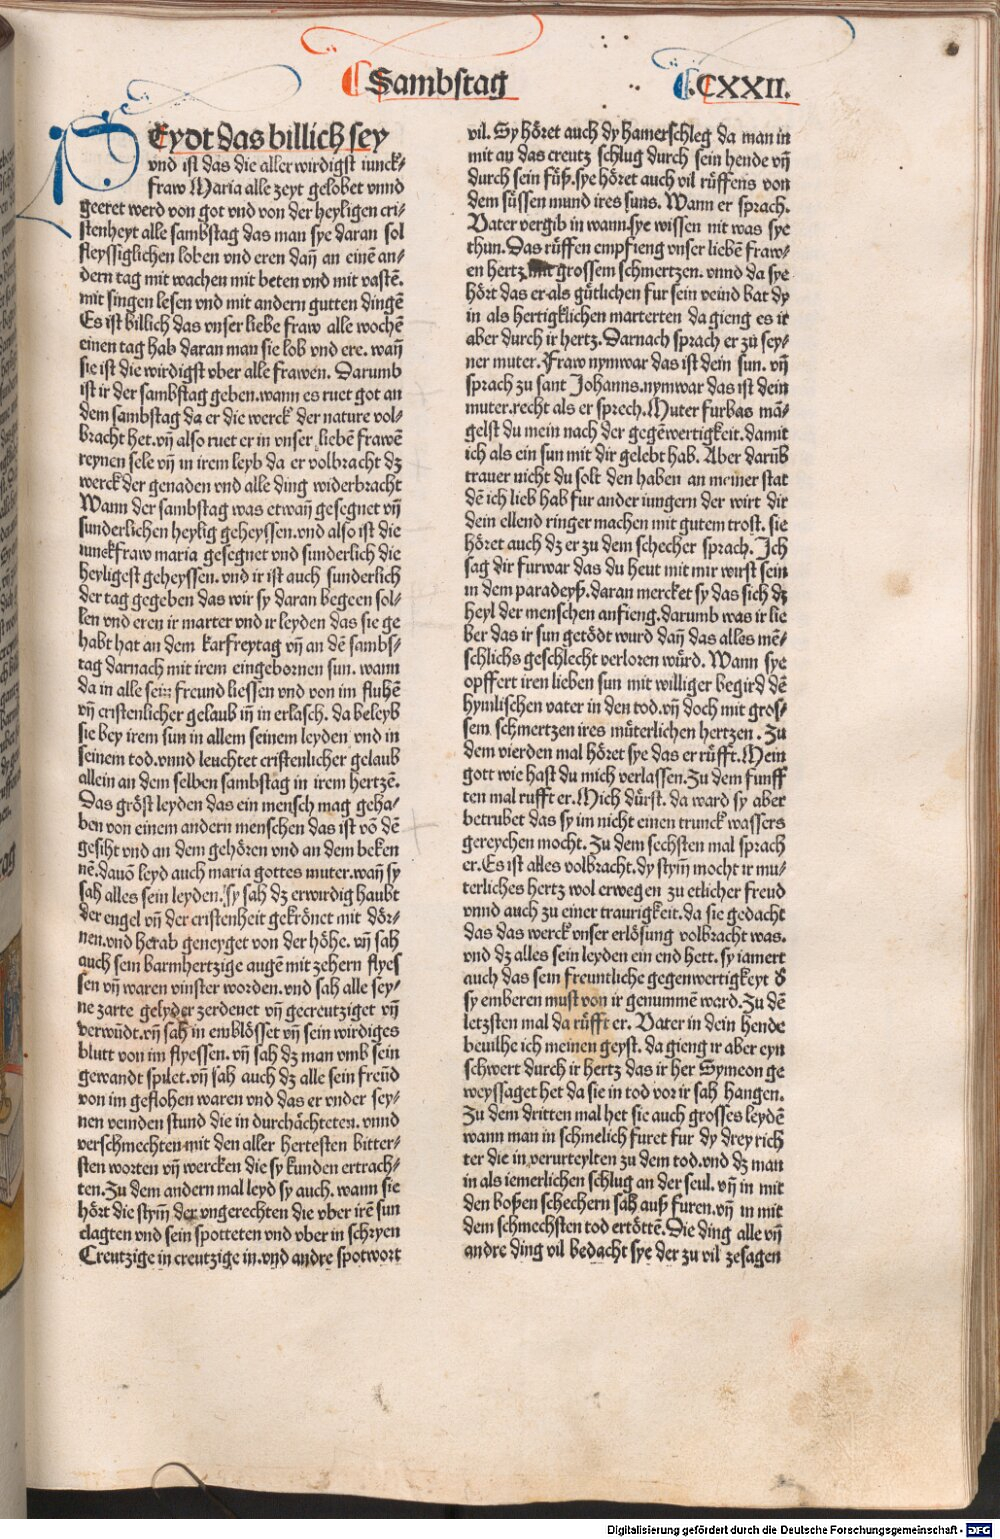 Sambstag
.CXXII.
Seydt das billich sey
vnd ist das die aller wirdigst iunck⸗
fraw Maria alle zeyt gelobet vnnd
geeret werd von got vnd von der heyligen cri⸗
stenheyt alle sambstag das man sye daran sol
fleyssiglichen loben vnd eren dañ an einē an⸗
dern tag mit wachen mit beten vnd mit vastē.
mit singen lesen vnd mit andern gutten dingē
Es ist billich das vnser liebe fraw alle wochē
einen tag hab daran man sie lob vnd ere. wañ
sie ist die wirdigst vber alle frawen. Darumb
ist ir der sambstag geben.wann es ruet got an
dem sambstag da er die werck der nature vol⸗
bracht het.vñ also ruet er in vnser liebē frawē
reynen sele vñ in irem leyb da er volbracht dz
werck der genaden vnd alle ding widerbracht
Wann der sambstag was etwañ gesegnet vñ
sunderlichen heylig geheyssen.vnd also ist die
iunckfraw maria gesegnet vnd sunderlich die
heyligest geheyssen. vnd ir ist auch sunderlich
der tag gegeben das wir sy daran begeen sol⸗
len vnd eren ir marter vnd ir leyden das sie ge
habt hat an dem karfreytag vñ an dē sambs⸗
tag darnach mit irem eingebornen sun. wann
da in alle sein freund liessen vnd von im fluhē
vñ cristenlicher gelaub in in erlasch. da beleyb
sie bey irem sun in allem seinem leyden vnd in
seinem tod.vnnd leuchtet cristenlicher gelaub
allein an dem selben sambstag in irem hertzē.
Das gröst leyden das ein mensch mag geha⸗
ben von einem andern menschen das ist vō dē
gesiht vnd an dem gehören vnd an dem beken
nē.dauō leyd auch maria gottes muter.wañ sy
sah alles sein leyden. sy sah dz erwirdig haubt
der engel vñ der cristenheit gekrönet mit dör⸗
nen.vnd herab geneyget von der höhe. vñ sah
auch sein barmhertzige augē mit zehern flyes
sen vñ waren vinster worden.vnd sah alle sey⸗
ne zarte gelyder zerdenet vñ gecreutziget vñ
verwūdt.vñ sah in emblösset vñ sein wirdiges
blutt von im flyessen. vñ sah dz man vmb sein
gewandt spilet.vñ sah auch dz alle sein freūd
von im geflohen waren vnd das er vnder sey⸗
nen veinden stund die in durchächteten. vnnd
verschmechten mit den aller hertesten bitter⸗
sten worten vñ wercken die sy kunden ertrach⸗
ten.Zu dem andern mal leyd sy auch. wann sie
hört die stym̄ der vngerechten die vber irē sun
clagten vnd sein spotteten vnd vber in schryen
Creutzige in creutzige in.vnd andre spotwort
vil. Sy höret auch dy hamerschleg da man in
mit an das creutz schlug durch sein hende vñ
durch sein füß.sye höret auch vil rüffens von
dem süssen mund ires suns. Wann er sprach.
Vater vergib in wann.sye wissen nit was sye
thun. Das rüffen empfieng vnser liebē fraw⸗
en hertz mit grossem schmertzen. vnnd da sye
hört das er als gütlichen fur sein veind bat dy
in als hertigklichen marterten da gieng es ir
aber durch ir hertz. Darnach sprach er zü sey⸗
ner muter. Fraw nymwar das ist dein sun. vñ
sprach zu sant Johanns.nymwar das ist dein
muter.recht als er sprech. Muter furbas mā⸗
gelst du mein nach der gegēwertigkeit.damit
ich als ein sun mit dir gelebt hab. Aber darūb
trauer nicht du solt den haben an meiner stat
dē ich lieb hab fur ander iungern der wirt dir
dein ellend ringer machen mit gutem trost. sie
höret auch dz er zu dem schecher sprach. Ich
sag dir furwar das du heut mit mir wirst sein
in dem paradeyß.daran mercket sy das sich dz
heyl der menschen anfieng.darumb was ir lie
ber das ir sun getödt wurd dañ das alles mē⸗
schlichs geschlecht verloren würd. Wann sye
opffert iren lieben sun mit williger begird dē
hymlischen vater in den tod.vñ doch mit gros⸗
sem schmertzen ires müterlichen hertzen . Zu
dem vierden mal höret sye das er rüfft. Mein
gott wie hast du mich verlassen.Zu dem funff
ten mal rufft er. Mich dürst. da ward sy aber
betrubet das sy im nicht einen trunck wassers
gereychen mocht. Zu dem sechsten mal sprach
er. Es ist alles volbracht.dy stym̄ mocht ir mu⸗
terliches hertz wol erwegen zu etlicher freud
vnnd auch zu einer traurigkeit.da sie gedacht
das das werck vnser erlösung volbracht was.
vnd dz alles sein leyden ein end hett. sy iamert
auch das sein freuntliche gegenwertigkeyt d̕
sy emberen must von ir genummē ward. Zu dē
letzsten mal da rüfft er. Vater in dein hende
beuilhe ich meinen geyst. da gieng ir aber eyn
schwert durch ir hertz das ir her Symeon ge
weyssaget het da sie in tod vor ir sah hangen.
Zu dem dritten mal het sie auch grosses leydē
wann man in schmelich furet fur dy drey rich
ter die in verurteylten zu dem tod.vnd dz man
in als iemerlichen schlug an der seul. vñ in mit
den boßen schechern sah auß furen.vñ in mit
dem schmechsten tod ertöttē. Die ding alle vñ
andre ding vil bedacht sye der zu vil zesagen
Digitalisierung gefördert durch die Deutsche Forschungsgemeinschaft - DFG